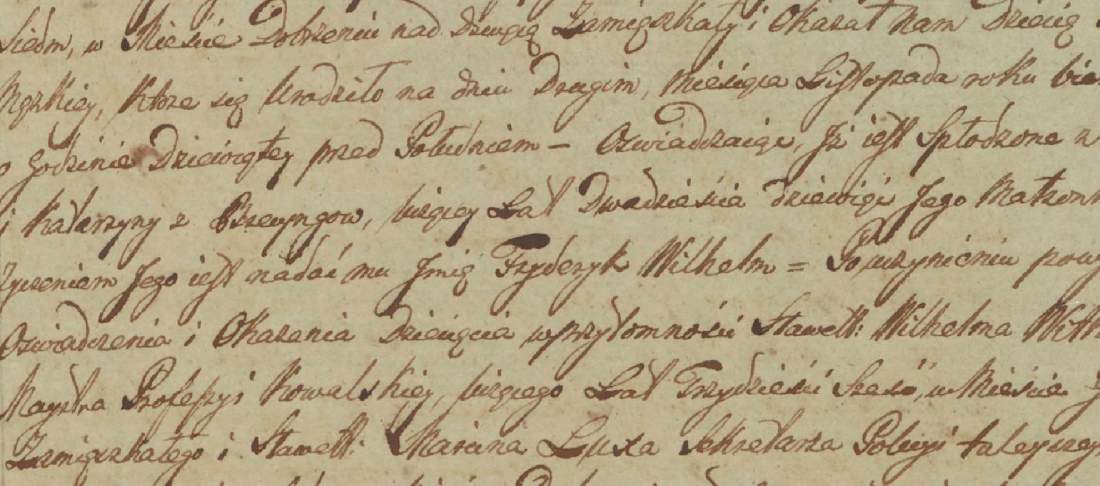 Siedm, w Mieście Dobrzeniu nad Drwęcą Zamięszkały i Okazał Nam Dziecię
Męzkiey, Które się Urodziło na dniu Drugim, Miesiąca Listopada roku bie
o Godzinie Dziewiątey przed Południem — Oswiadczaiąc, Jż iest Spłodzone z
i Katarzyny z liczącey Lat Dwadzieścia dziewięć Jego Małżon
Zyczeniem Jego iest nadać mu Jmię Fryderyk Wilhelm = Po uczynieniu powy
Oświadczenia i Okazania Dziecięcia w przytomności Sławetn: Wilhelma Witt
Maystra Profeszyi Kowalskiey, liczącego Lat Trzydzieści Sześć, w Mieście
Zamięszkałego i Sławetn: Marcina Luxa Sekretarza Policyi taleyszey